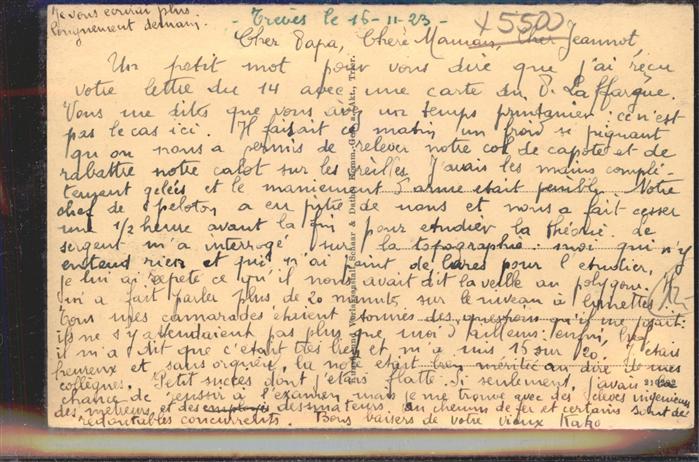 Je vous écrirai plus
longuement demain.
- Trèves le 15-11-23 -
X5500
Cher Papa, Chère Maman, Cher Jeannot,
Un petit mot pour vous dire que j'ai reçu
votre lettre du 14 avec une carte du D. Laffargue.
Vous me dites que vous avez un temps printanier : ce n'est
pas le cas ici. Il faisait ce matin un froid si piquant
qu'on nous a permis de relever notre col de capote et de
rabattre notre calot sur les oreilles. J'avais les mains complè-
tement gelées et le maniement d'arme était pénible. Notre
chef de peloton a eu pitié de nous et nous a fait cesser
une 1/2 heure avant la fin pour étudier la théorie. Le
sergent m'a interrogé sur la topographie : moi qui n'y
entend rien et qui n'ai point de livres pour l'étudier,
je lui ai répété ce qu'il nous avait dit la veille au polygone.
Il m'a fait parler plus de 20 minutes sur le niveau à lunettes
Tous mes camarades étaient étonnés des questions qu'il me posait:
ils ne s'y attendaient pas plus que moi d'ailleurs. Enfin,
il m'a dit que c'était très bien et m'a mis 15 sur 20. J'étais
heureux et sans orgueil, la note était bien méritée au dire de mes
collègues. Petit succès dont j'étais flatté. Si seulement j'avais
chance de réussir à l'examen, mais je me trouve avec des élèves ingénieurs
des métreurs, et des employés dessinateurs au chemin de fer et certains sont de
redoutables concurrents. Bons baisers de votre vieux Kako
Schaar & Dathe, Komm.-Ges. a. Akt., Trier.